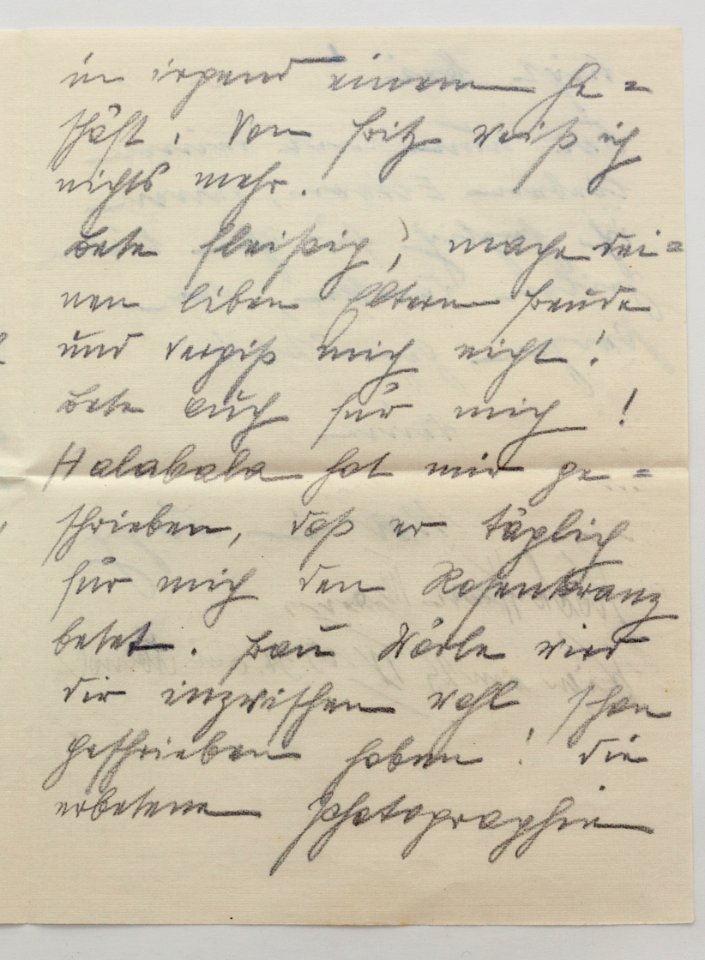 in irgend einem Ge=
schäft. Von Fritz weiß ich
nichts mehr.
Bete fleißig, mache dei=
nen liben Eltern Freude
und vergiß mich nicht!
Bete auch für mich!
Halabala hat mir ge=
schrieben, daß er täglich
für mich den Rosenkranz
betet. Frau Hörle wird
dir inzwischen wohl schon
geschrieben haben! Die
erbetene Photographie